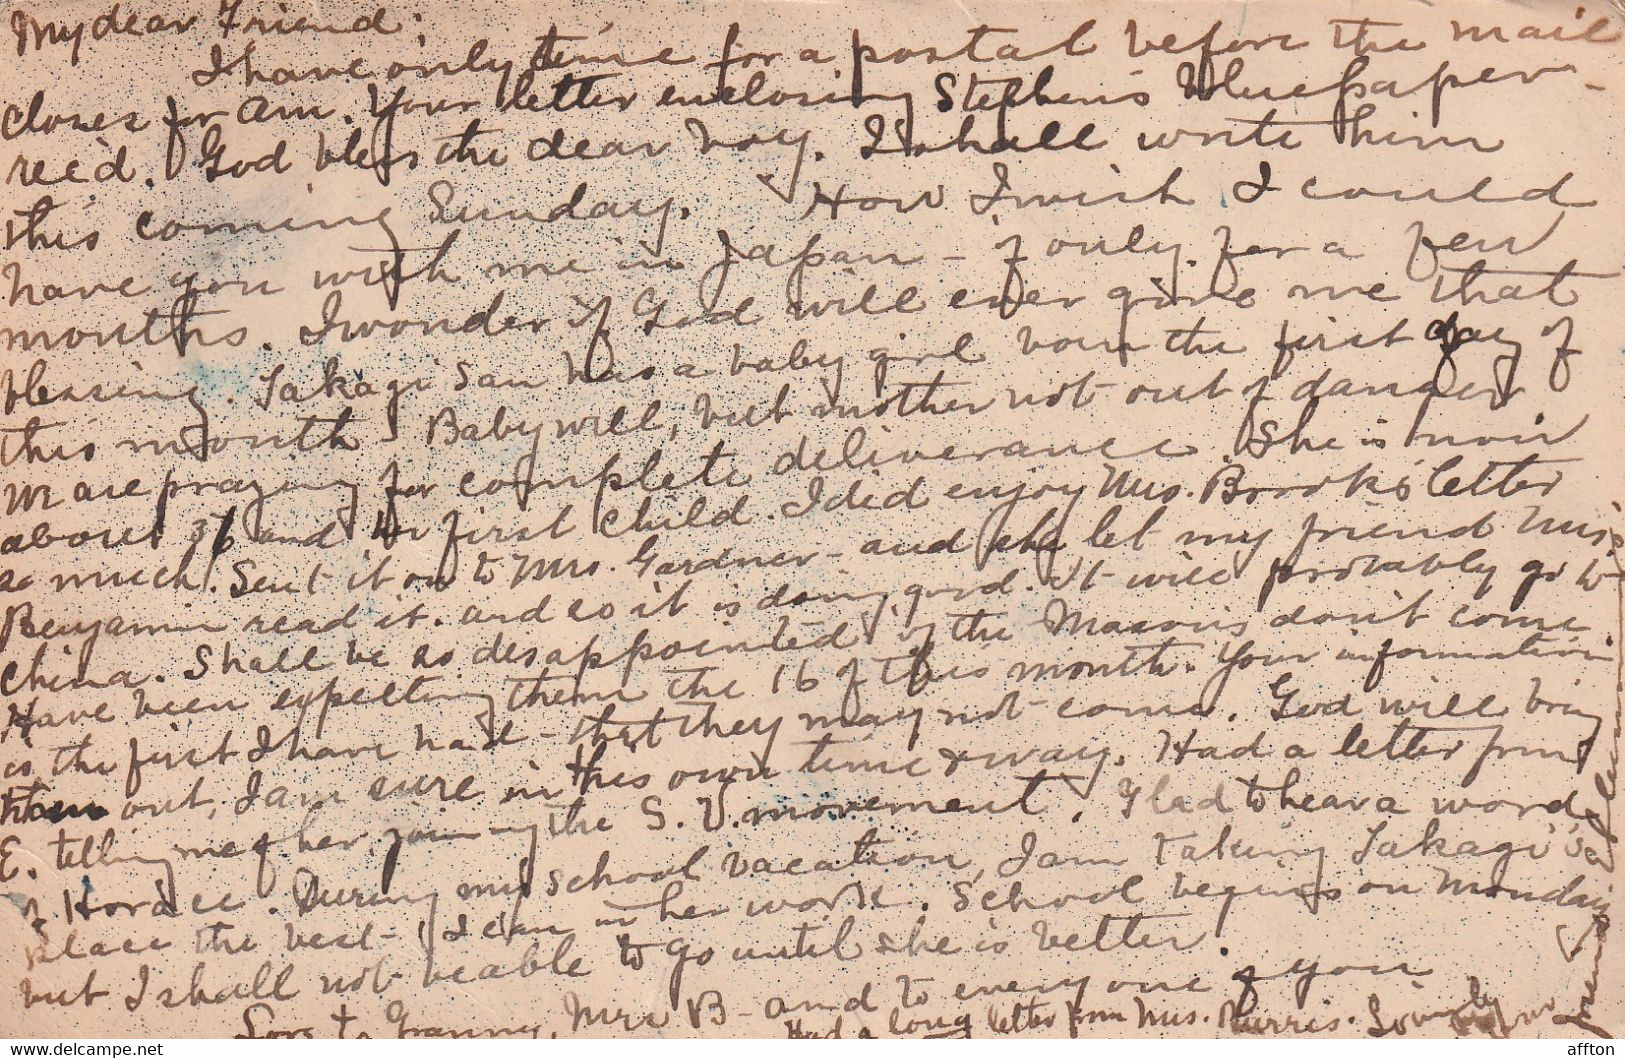 My dear Friend:
I have only time for a postal before the mail
closes for Am. Your letter enclosing Stephen's bluepaper
rec'd. God bless the dear boy. I shall write him
this coming Sunday. How I wish I could
have you with me in Japan - if only for a few
months. I wonder if God will ever give me that
blessing. Takagi San has a baby girl born the first day of
this month. Baby well, but mother not out of danger.
We are praying for complete deliverance. She is now
about 36 and her first child. I did enjoy Mrs. Brook's letter
so much. Sent it on to Mrs. Gardner - and she let my friend Miss
Benjamin read it. and so it is doing good. It will probably go to
China. Shall be so disappointed if the Masons don't come.
Have been expecting them the 16 of this month. Your information
is the first I have had - that they may not come. God will bring
them out, I am sure in his own time & way. Had a letter from
E. telling me of her joining the S. V. movement. Glad to hear a word
of Horace. During my school vacation, I am taking Takagi's
place the best I can in her work. School begins on Monday
but I shall not be able to go until she is better.
Love to Granny, Mrs B - and to every one of you
Had a long letter from Mrs. Burris. Lovingly
affton